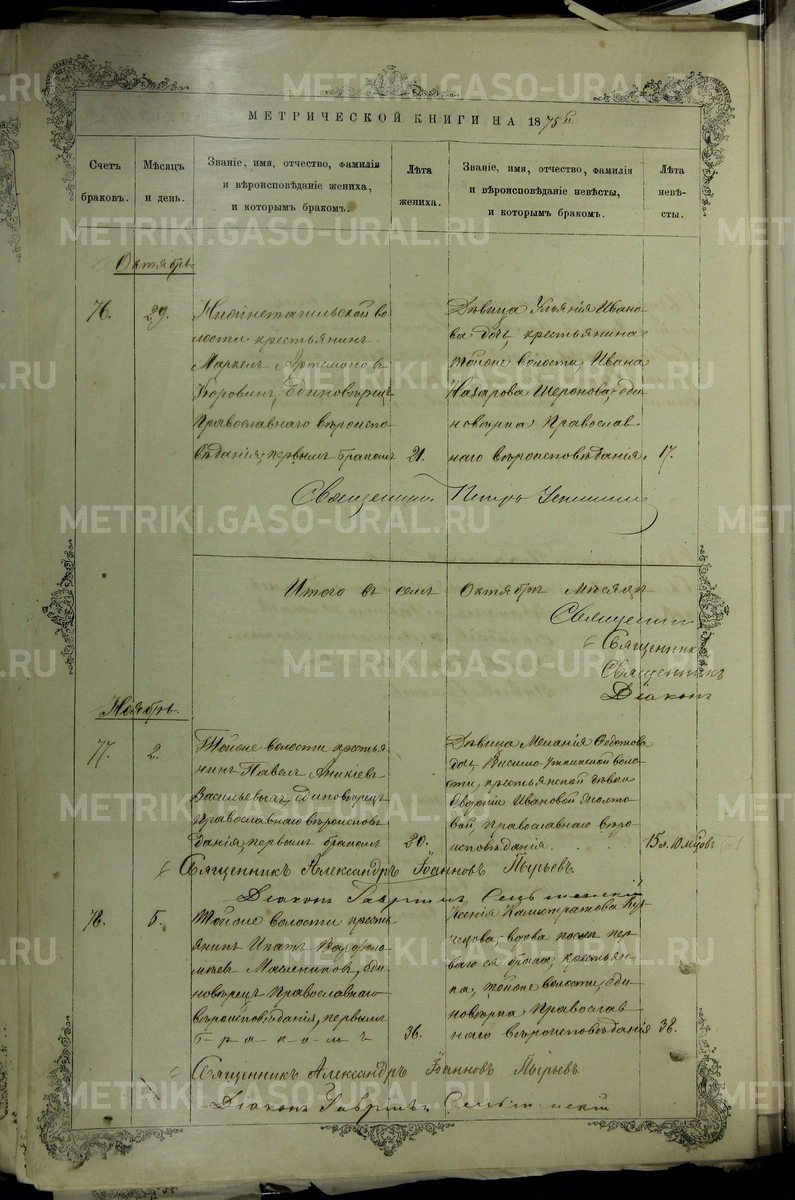 МЕТРИЧЕСКОЙ КНИГИ НА 1875 г.
Счетъ браковъ.
Мѣсяцъ и день.
Званіе, имя, отчество, фамилія
и вѣроисповѣданіе жениха,
и которымъ бракомъ.
Лѣта жениха.
Званіе, имя, отчество, фамилія
и вѣроисповѣданіе невѣсты,
и которымъ бракомъ.
Лѣта невѣсты.
Октябрь
76. 29.
Нижнетагильской во
лости крестьянинъ
Маркелъ Артемоновъ
Единовѣрецъ
Православнаго вѣроиспо
вѣданія, первымъ бракомъ 21.
Дѣвица Ульянія Ивано
ва дочь, крестьянина
тойже волости Ивана
Назарова еди
новѣрка Православ
наго вѣроисповѣданія. 17.
Священникъ Петръ
Итого въ семъ Октябрѣ мѣсяцѣ
Священникъ
Священникъ
Священникъ
Діаконъ
Ноябрь
77. 2.
Тойже волости крестья
нинъ Павелъ Аникіевъ
Васильевыхъ, единовѣрецъ
Православнаго вѣроисповѣ
данія, первымъ бракомъ 20.
Дѣвица Меланія Ѳедотова
дочь, Висимо-Уткинской воло
сти, крестьянской дѣвки
Ивановой
вой, православнаго вѣро
исповѣданія. 15 л. 10 мѣсяц.
Священникъ Александръ Іоанновъ Пырьевъ
Діаконъ Гавріилъ
78. 5.
Тойже волости кресть
янинъ Ипатъ Варѳоло
мѣевъ еди
новѣрецъ Православнаго
вѣроисповѣданія, первымъ
б-р-а-к-о-м-ъ 36.
Ксенія Калистратова Куз
нецова, вдова послѣ пер
ваго ея брака, крестьян
ка, тойже волости, еди
новѣрка Православ
наго вѣроисповѣданія 38.
Священникъ Александръ Іоанновъ Пырьевъ
Діаконъ Гавріилъ
METRIKI.GASO-URAL.RU